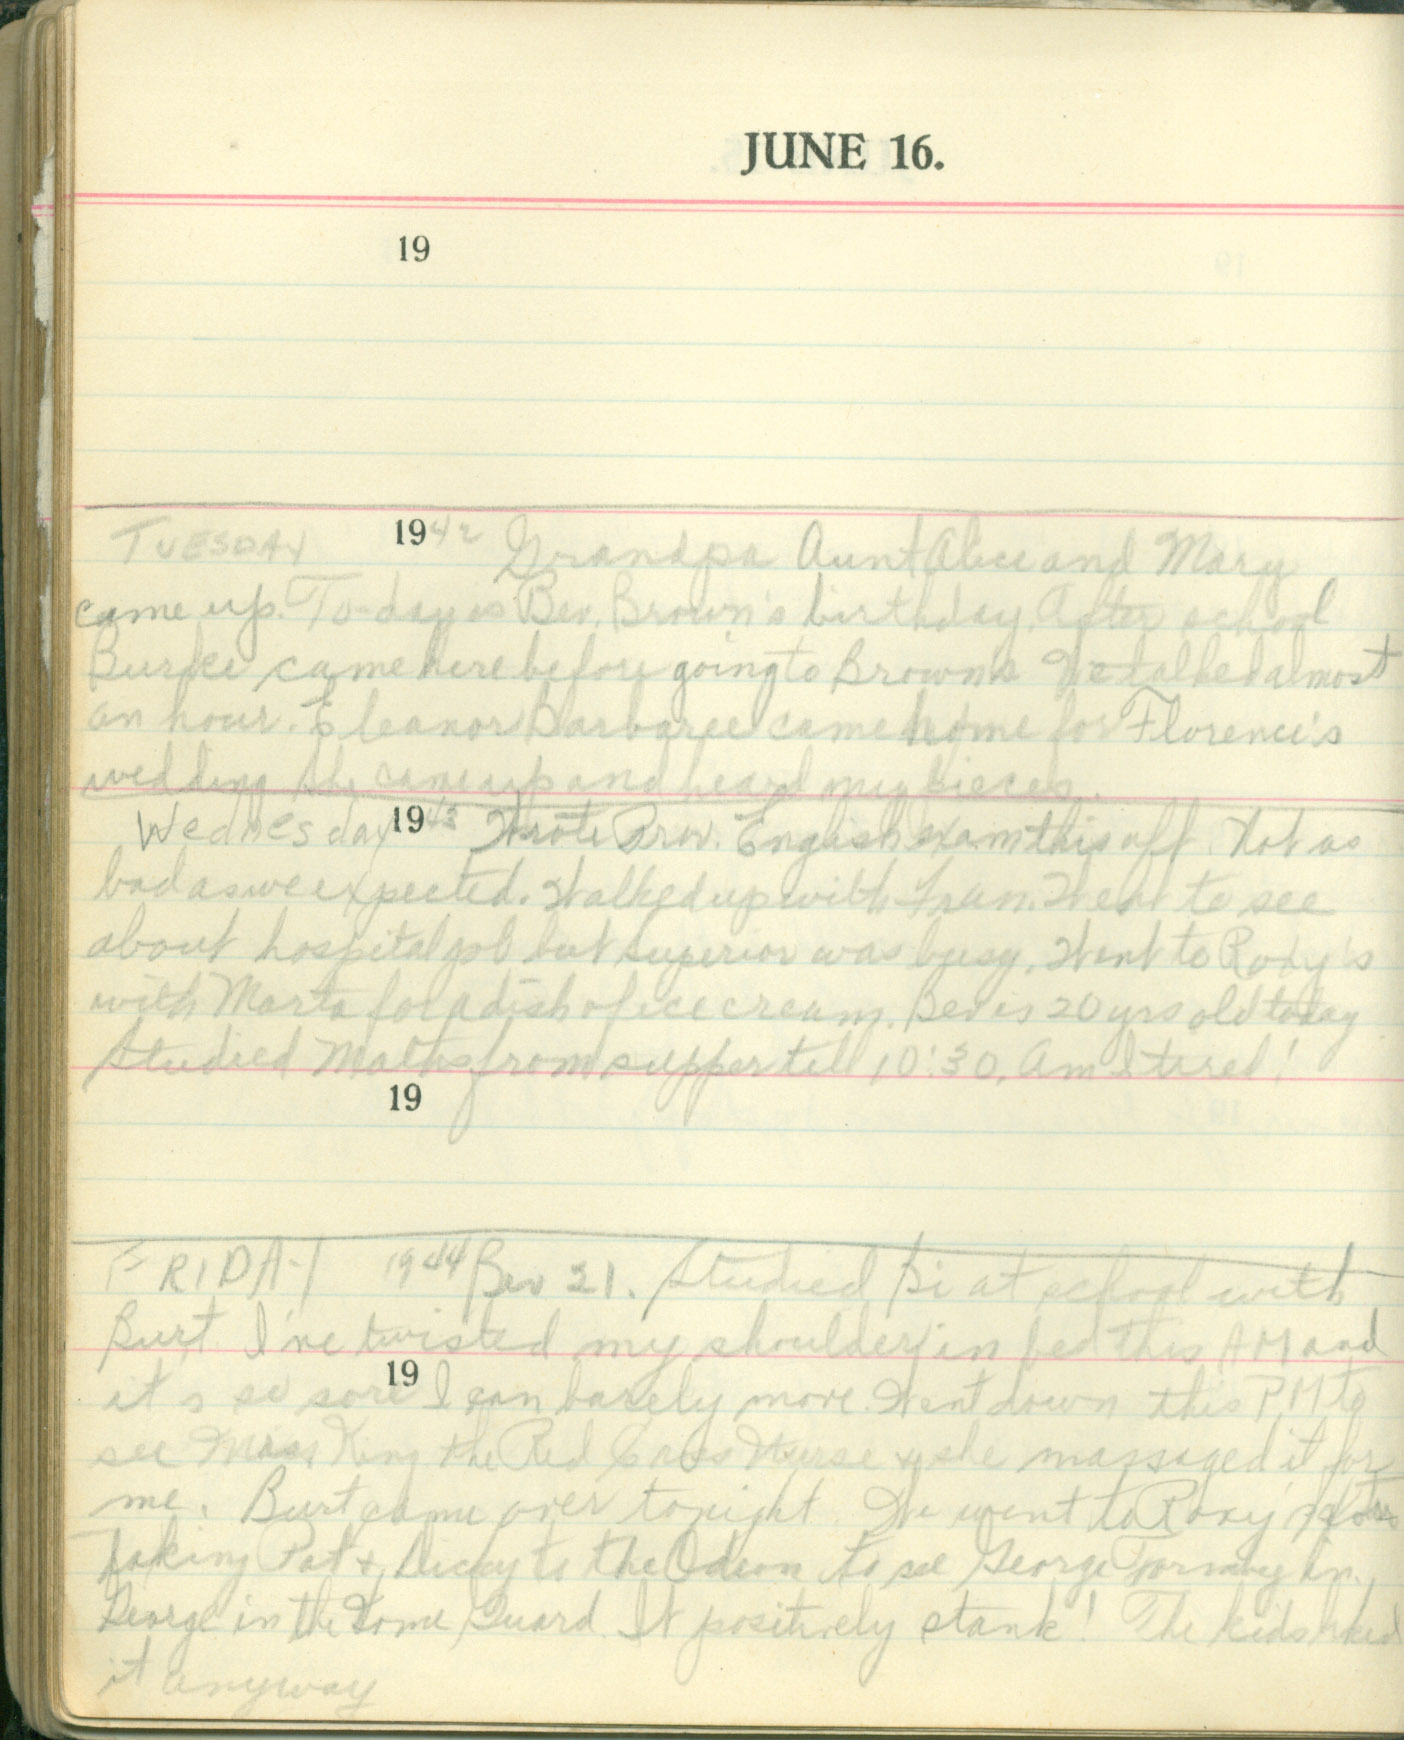 JUNE 16.
19
TUESDAY 1942 Grandpa Aunt Alice and Mary
came up. To-day is Bev. Brown's birthday. After school
Burke came here before going to Browns. We talked almost
an hour. Eleanor Barbaree came home for Florence's
wedding she came up and heard my pieces.
Wednesday 1943 Wrote Prov. English exam this aft. Not as
bad as we expected. Walked up with Fran. Went to see
about hospital job but Superior was busy. Went to Roxy's
with Marta for a dish of ice cream. Bev is 20 yrs old today
Studied Maths from supper till 10:30. Am I tired!
19
FRIDAY 1944 Bev 21. Studied Bi at school with
Burt I've twisted my shoulder in bed this AM and
19
it's so sore I can barely move. Went down this PM to
see Miss King the Red Cross Nurse & she massaged it for
me. Burt came over tonight. We went to Roxy
Taking Pat & to the Odeon to see George Formby in
George in the Home Guard. It positively stank! The kids liked
it anyway